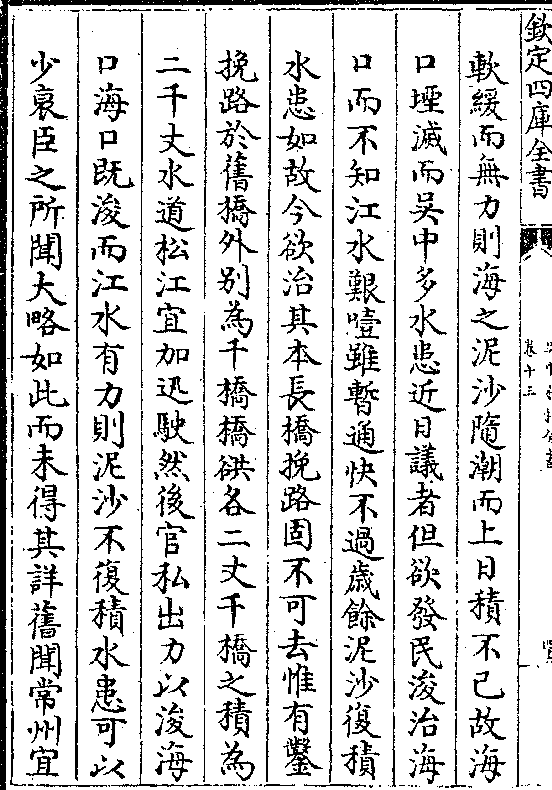 欽定四庫全書
卷十三
軟緩而無力則海之泥沙隨潮而上日積不已故海
口堙滅而吳中多水患近日議者但欲發民浚治海
口而不知江水艱噎雖暫通快不過歳餘泥沙復積
水患如故今欲治其本長橋挽路固不可去惟有鑿
挽路於舊橋外别為千橋橋谼各二丈千橋之積為
二千丈水道松江宜加迅駛然後官私出力以浚海
口海口既浚而江水有力則泥沙不復積水患可以
少衰臣之所聞大略如此而未得其詳舊聞常州宜